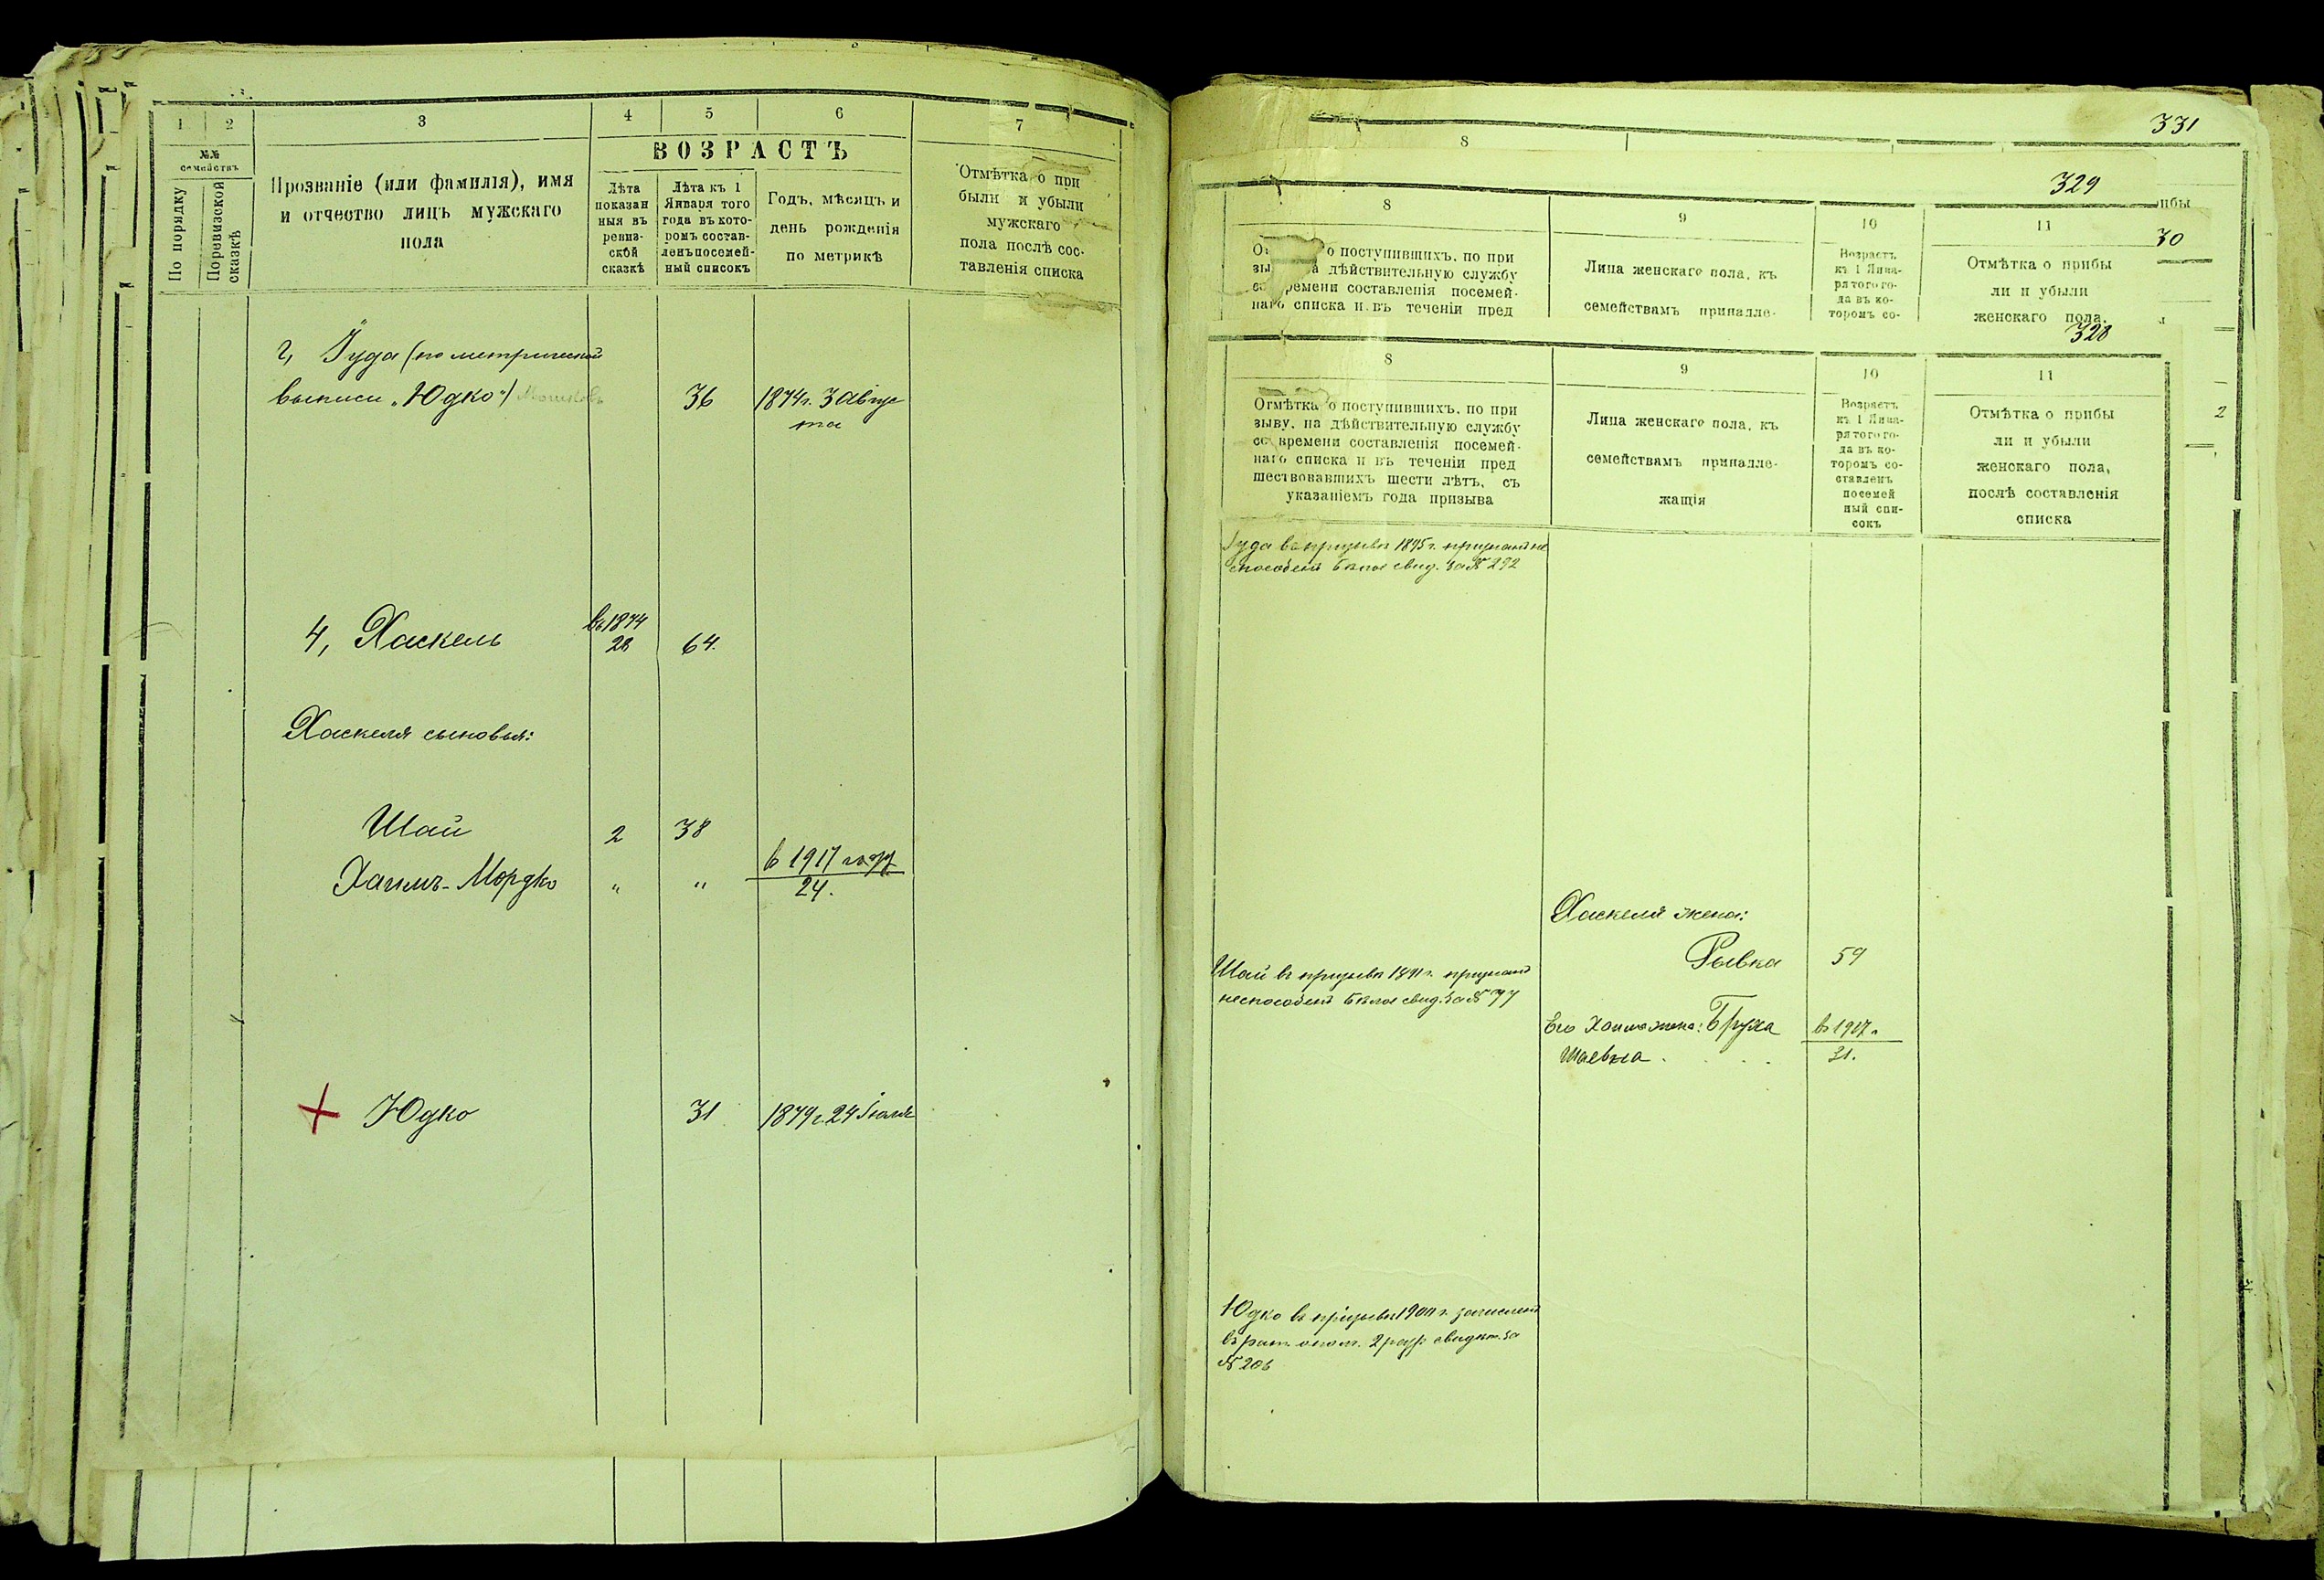 1 2 3 4 5 6 7
№№ семействъ
По порядку
По ревизской сказкѣ
Прозваніе (или фамилія), имя
и отчество лицъ мужскаго
пола
ВОЗРАСТЪ
Лѣта
показан
ныя въ
ревиз-
ской
сказкѣ
Лѣта къ 1
Января того
года въ кото-
ромъ состав-
ленъ посемей-
ный списокъ
Годъ, мѣсяцъ и
день рожденія
по метрикѣ
Отмѣтка о при
были и убыли
мужскаго
пола послѣ сос-
тавленія списка
2, Іуда (по метрической
выписи „Юдко") Мошковъ 36 1874 г. 3 Авгус
та
4, Хаскель въ 1874
28 64.
Хаскеля сыновья:
Шай 2 38
Хаимъ-Мордко " " в 1917 году
24.
Юдко 31 1879 г. 24
331
8
329
8 9 10 11
30
о поступившихъ, по при
дѣйствительную службу
времени составленія посемей-
наго списка и въ теченіи пред
Лица женскаго пола, къ
семействамъ принадле-
Возрастъ
къ 1 Янва-
ря того го-
да въ ко-
торомъ со-
Отмѣтка о прибы
ли и убыли
женскаго пола,
328
8 9 10 11
Отмѣтка о поступившихъ, по при
зыву, на дѣйствительную службу
со времени составленія посемей-
наго списка и въ теченіи пред
шествовавшихъ шести лѣтъ, съ
указаніемъ года призыва
Лица женскаго пола, къ
семействамъ принадле-
жащія
Возрастъ
къ 1 Янва-
ря того го-
да въ ко-
торомъ со-
ставленъ
посемей
ный спи-
сокъ
Отмѣтка о прибы
ли и убыли
женскаго пола,
послѣ составленія
списка
2
Іуда въ призывъ 1895 г. признанъ не
способенъ бѣлое свид. за № 292
Хаскеля жена:
Рывка 59
Шай въ призывъ 1891 г. признанъ
неспособенъ бѣлое свид. за № 77
Его Хаима жена: Бруха в 1917 г.
Шаевна . . . . 31.
Юдко въ призывъ 1900 г. зачисленъ
въ рат. опол. 2 разр. свидѣт. за
№ 206